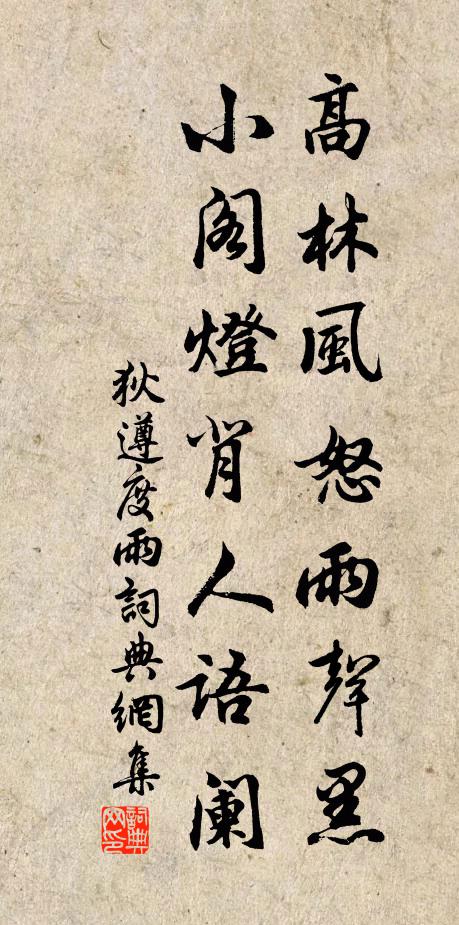 高林風怒雨聲黑
小閣燈背人語闌
狄遵度雨詞典網集
詞典网印